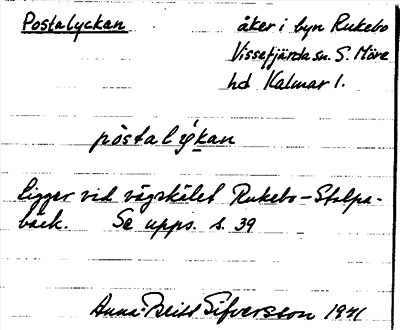 Postalyckan åker i byn Rukebo
Vissefjärda sn. S. Möre
hd Kalmar l.
pòstalýkan
Ligger vid vägskälet Rukebo-Stolpa-
bäck. Se upps. s. 39
Anna-Britt Sifversson 1941